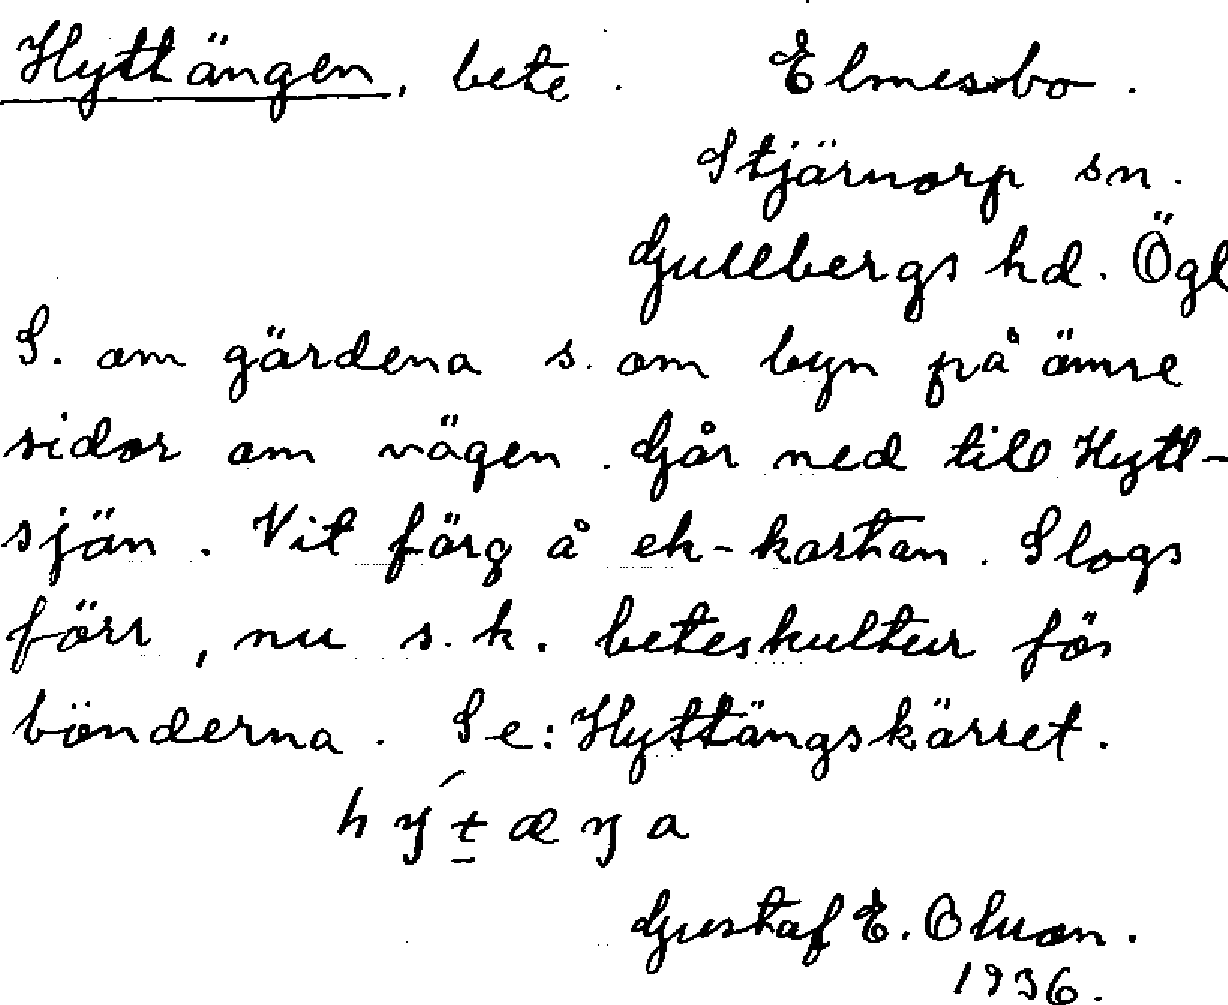 Hyttängen, bete. Elmesbo.
Stjärnorp sn.
Gullbergs hd. Ögl
S. om gärdena s. om byn på ömse
sidor om vägen. Går ned till Hytt-
sjön. Vit färg å ek-kartan. Slogs
förr, nu s.k. beteskultur för
bönderna. Se: Hyttängskärret.
hýt̲æŋa
Gustaf E. Olson.
1936.